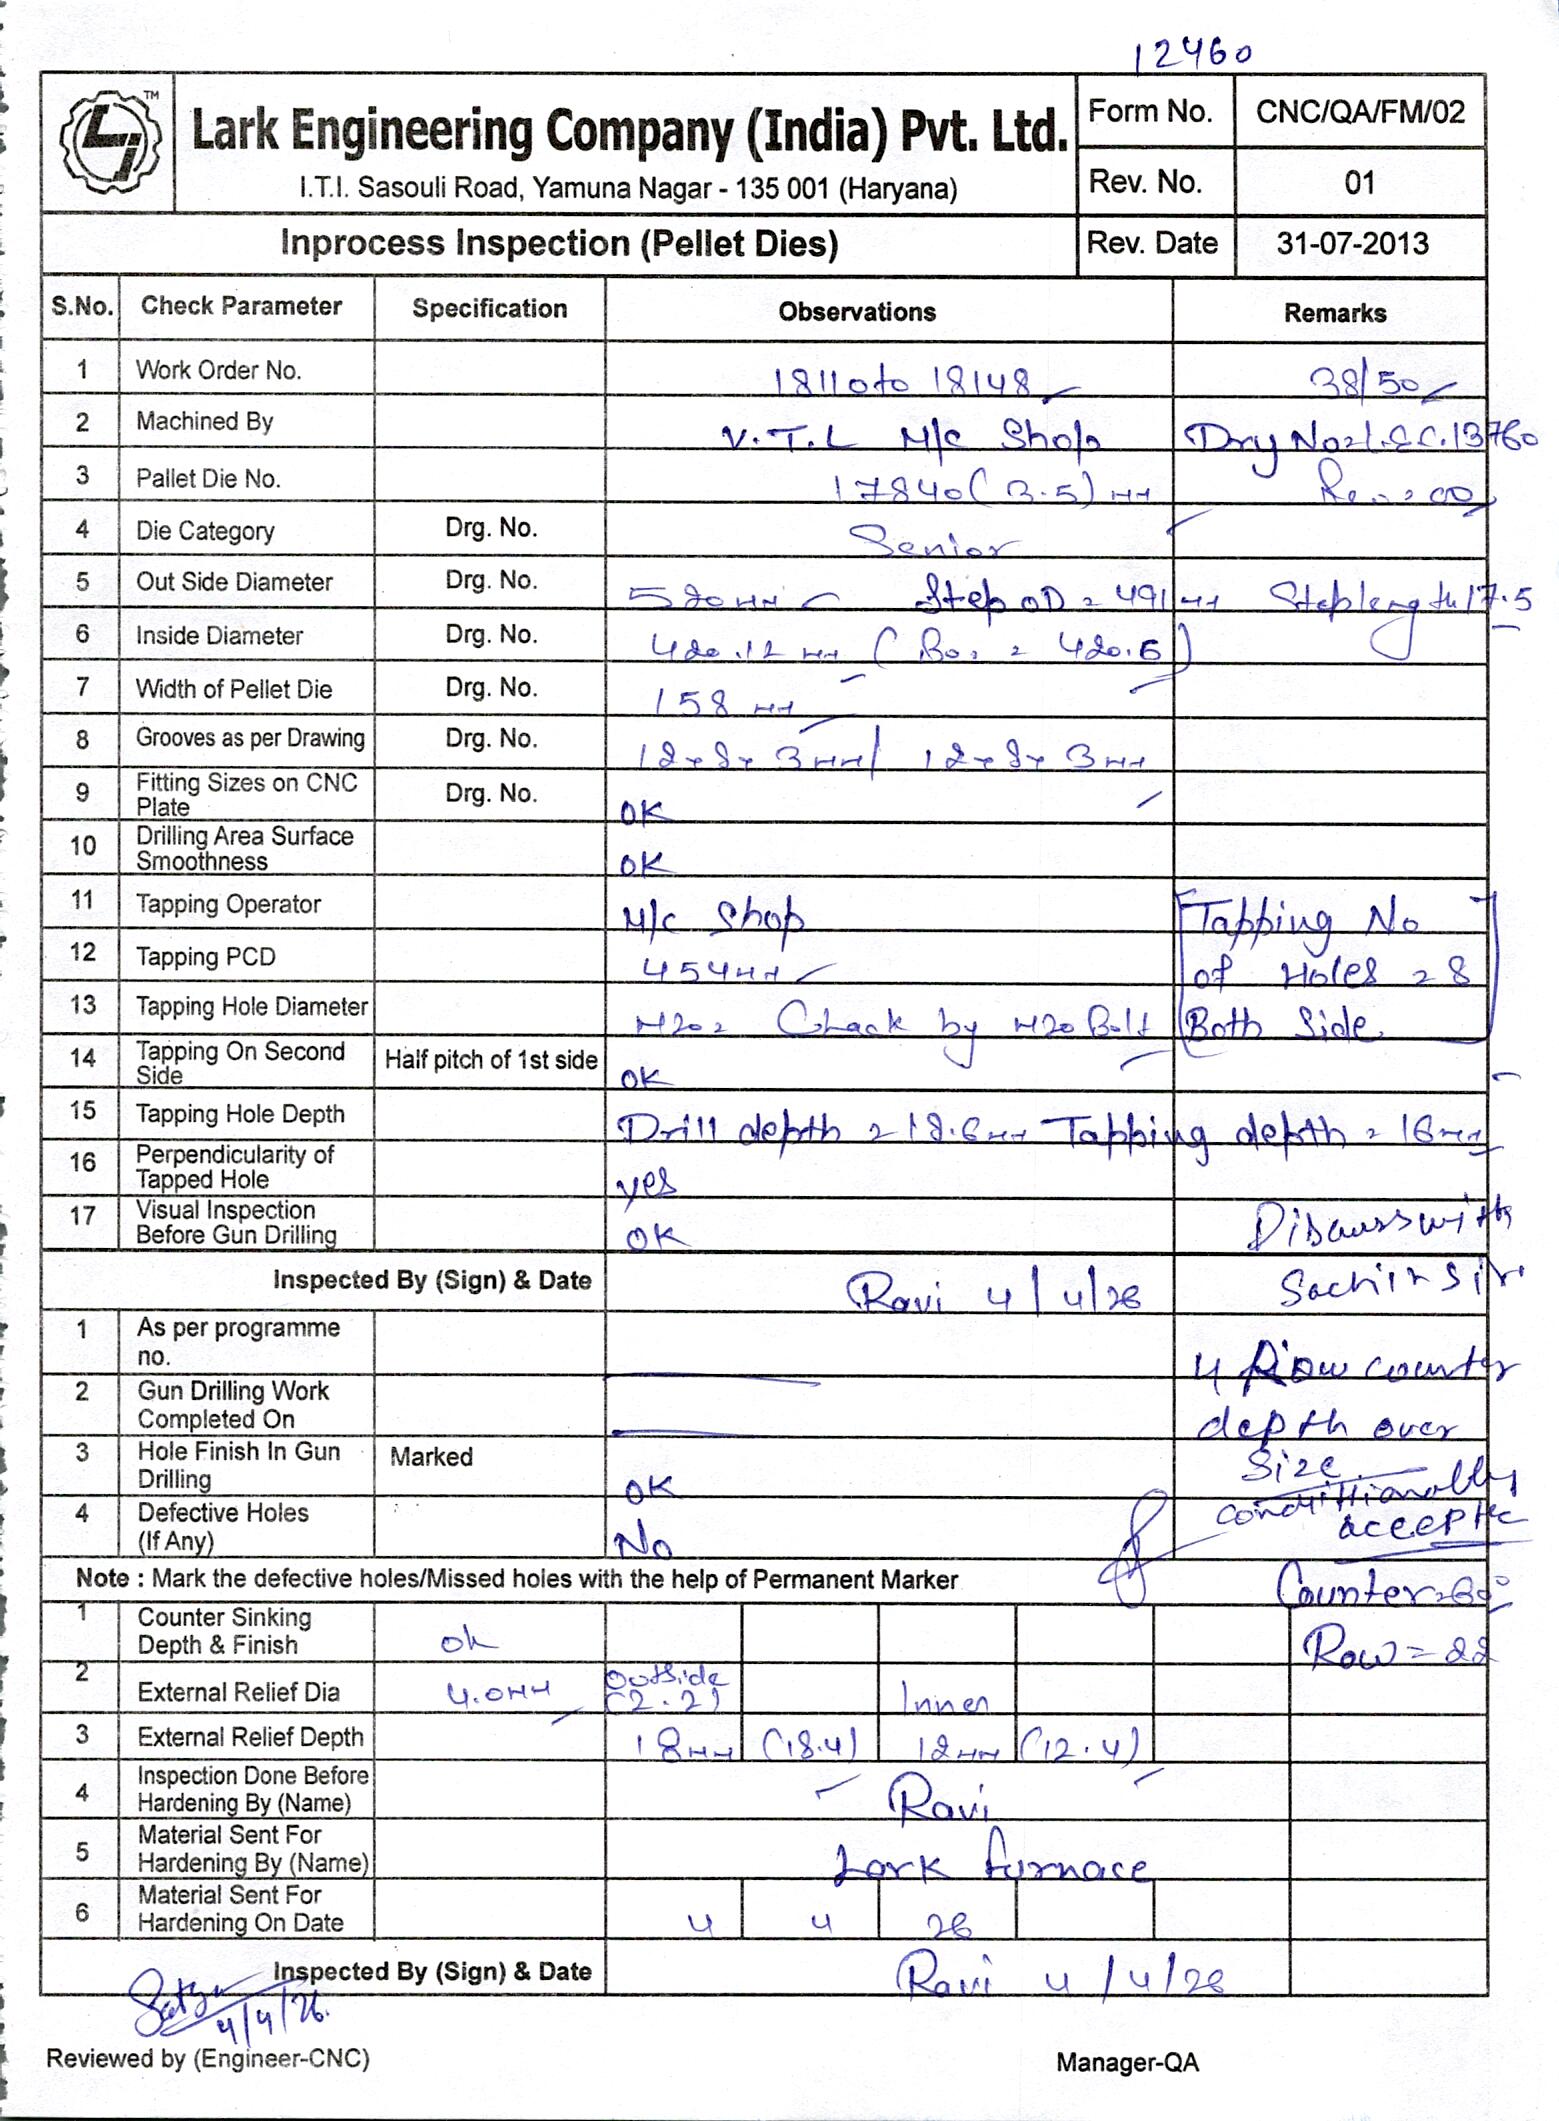 12460
TM
Lark Engineering Company (India) Pvt. Ltd.
I.T.I. Sasouli Road, Yamuna Nagar - 135 001 (Haryana)
Form No. CNC/QA/FM/02
Rev. No. 01
Inprocess Inspection (Pellet Dies) Rev. Date 31-07-2013
S.No. Check Parameter Specification Observations Remarks
1 Work Order No. 18110 to 18148 38/50
2 Machined By V.T.L M/c Shop Drg No=L.E.C.13760
3 Pallet Die No. 17840 (3.5) mm
4 Die Category Drg. No. Senior
5 Out Side Diameter Drg. No. 520mm Step OD = 491mm Step length 17.5
6 Inside Diameter Drg. No. 420.12 mm ( = 420.6)
7 Width of Pellet Die Drg. No. 158 mm
8 Grooves as per Drawing Drg. No. 12x8x3mm/ 12x8x3mm
9 Fitting Sizes on CNC Plate Drg. No. OK
10 Drilling Area Surface Smoothness OK
11 Tapping Operator M/c Shop Tapping No
12 Tapping PCD 454mm of Holes = 8
13 Tapping Hole Diameter M20 = Chack by M20 Bolt Both Side
14 Tapping On Second Side Half pitch of 1st side OK
15 Tapping Hole Depth Drill depth = 18.6mm Tapping depth = 16mm
16 Perpendicularity of Tapped Hole yes
17 Visual Inspection Before Gun Drilling OK Discuss with
Inspected By (Sign) & Date Ravi 4/4/26 Sachin Sir
1 As per programme no. 4 Row counter
2 Gun Drilling Work Completed On depth over
3 Hole Finish In Gun Drilling Marked OK Size
conditionally
4 Defective Holes (If Any) No accepted
Note : Mark the defective holes/Missed holes with the help of Permanent Marker Counter=60°
1 Counter Sinking Depth & Finish ok Row = 22
2 External Relief Dia 4.0mm Outside (2.2) Inner
3 External Relief Depth 18mm (18.4) 12mm (12.4)
4 Inspection Done Before Hardening By (Name) Ravi
5 Material Sent For Hardening By (Name) Lark furnace
6 Material Sent For Hardening On Date 4 4 26
Inspected By (Sign) & Date Ravi 4/4/26
4/4/26.
Reviewed by (Engineer-CNC) Manager-QA